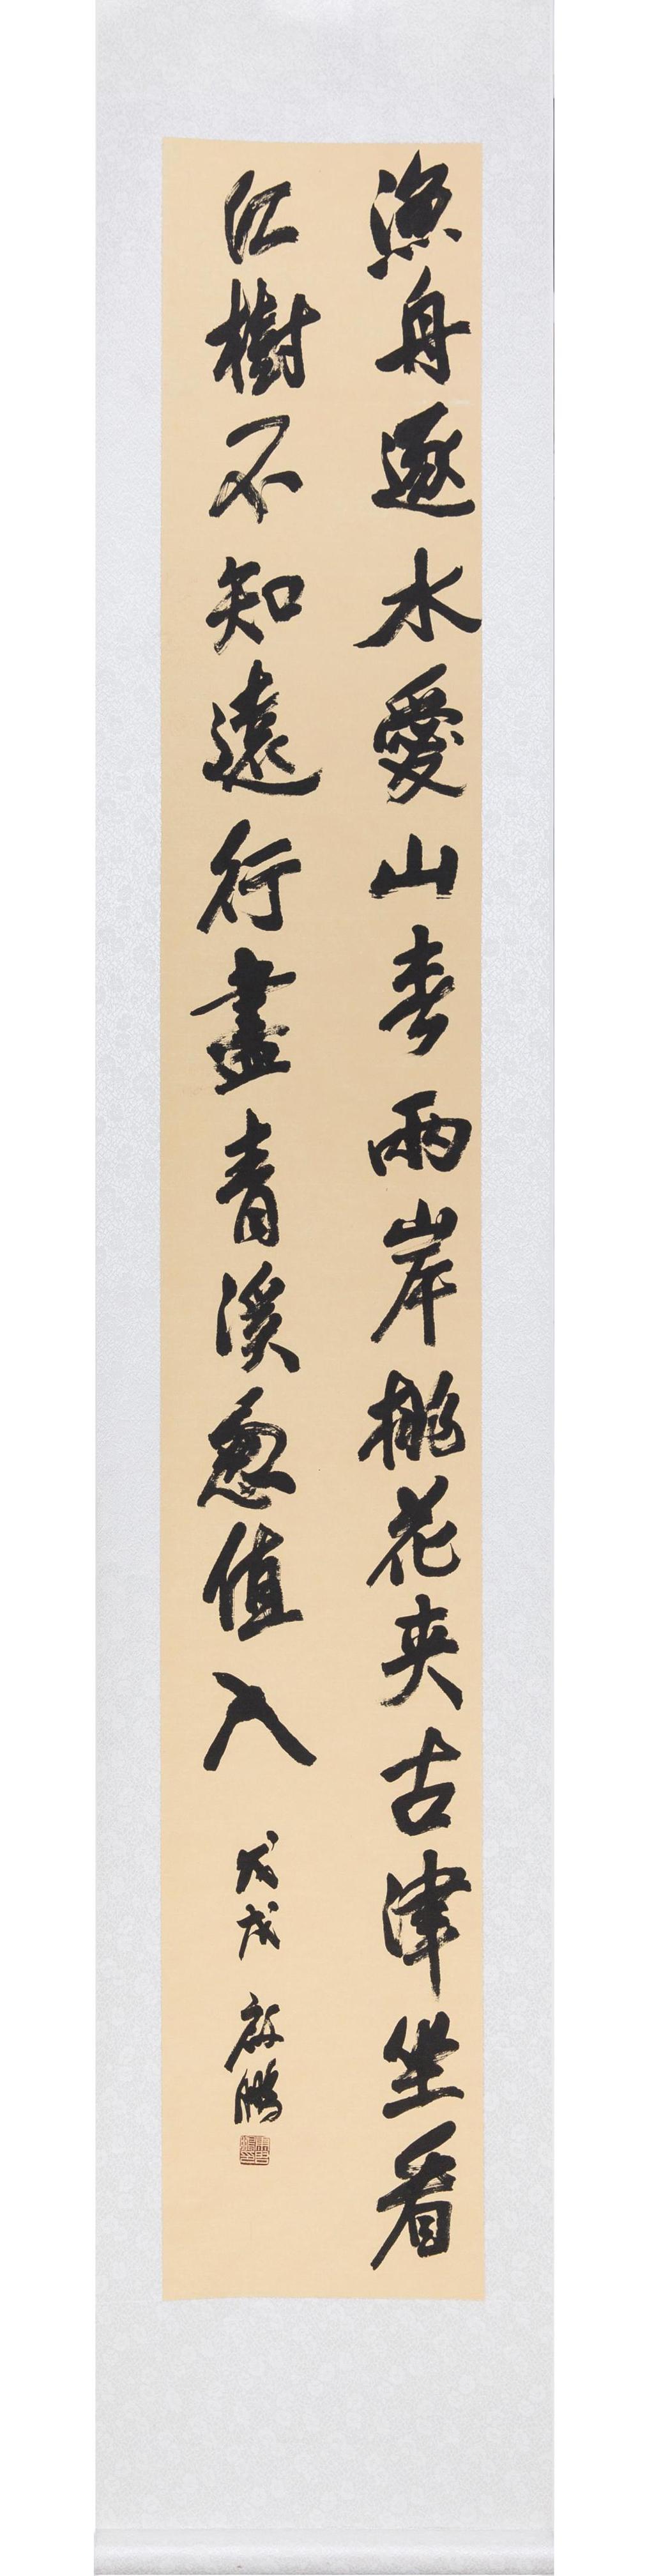 漁舟逐水愛山春兩岸桃花夾古津坐看
紅樹不知遠行盡青溪忽值人
戊戌 啟鵬